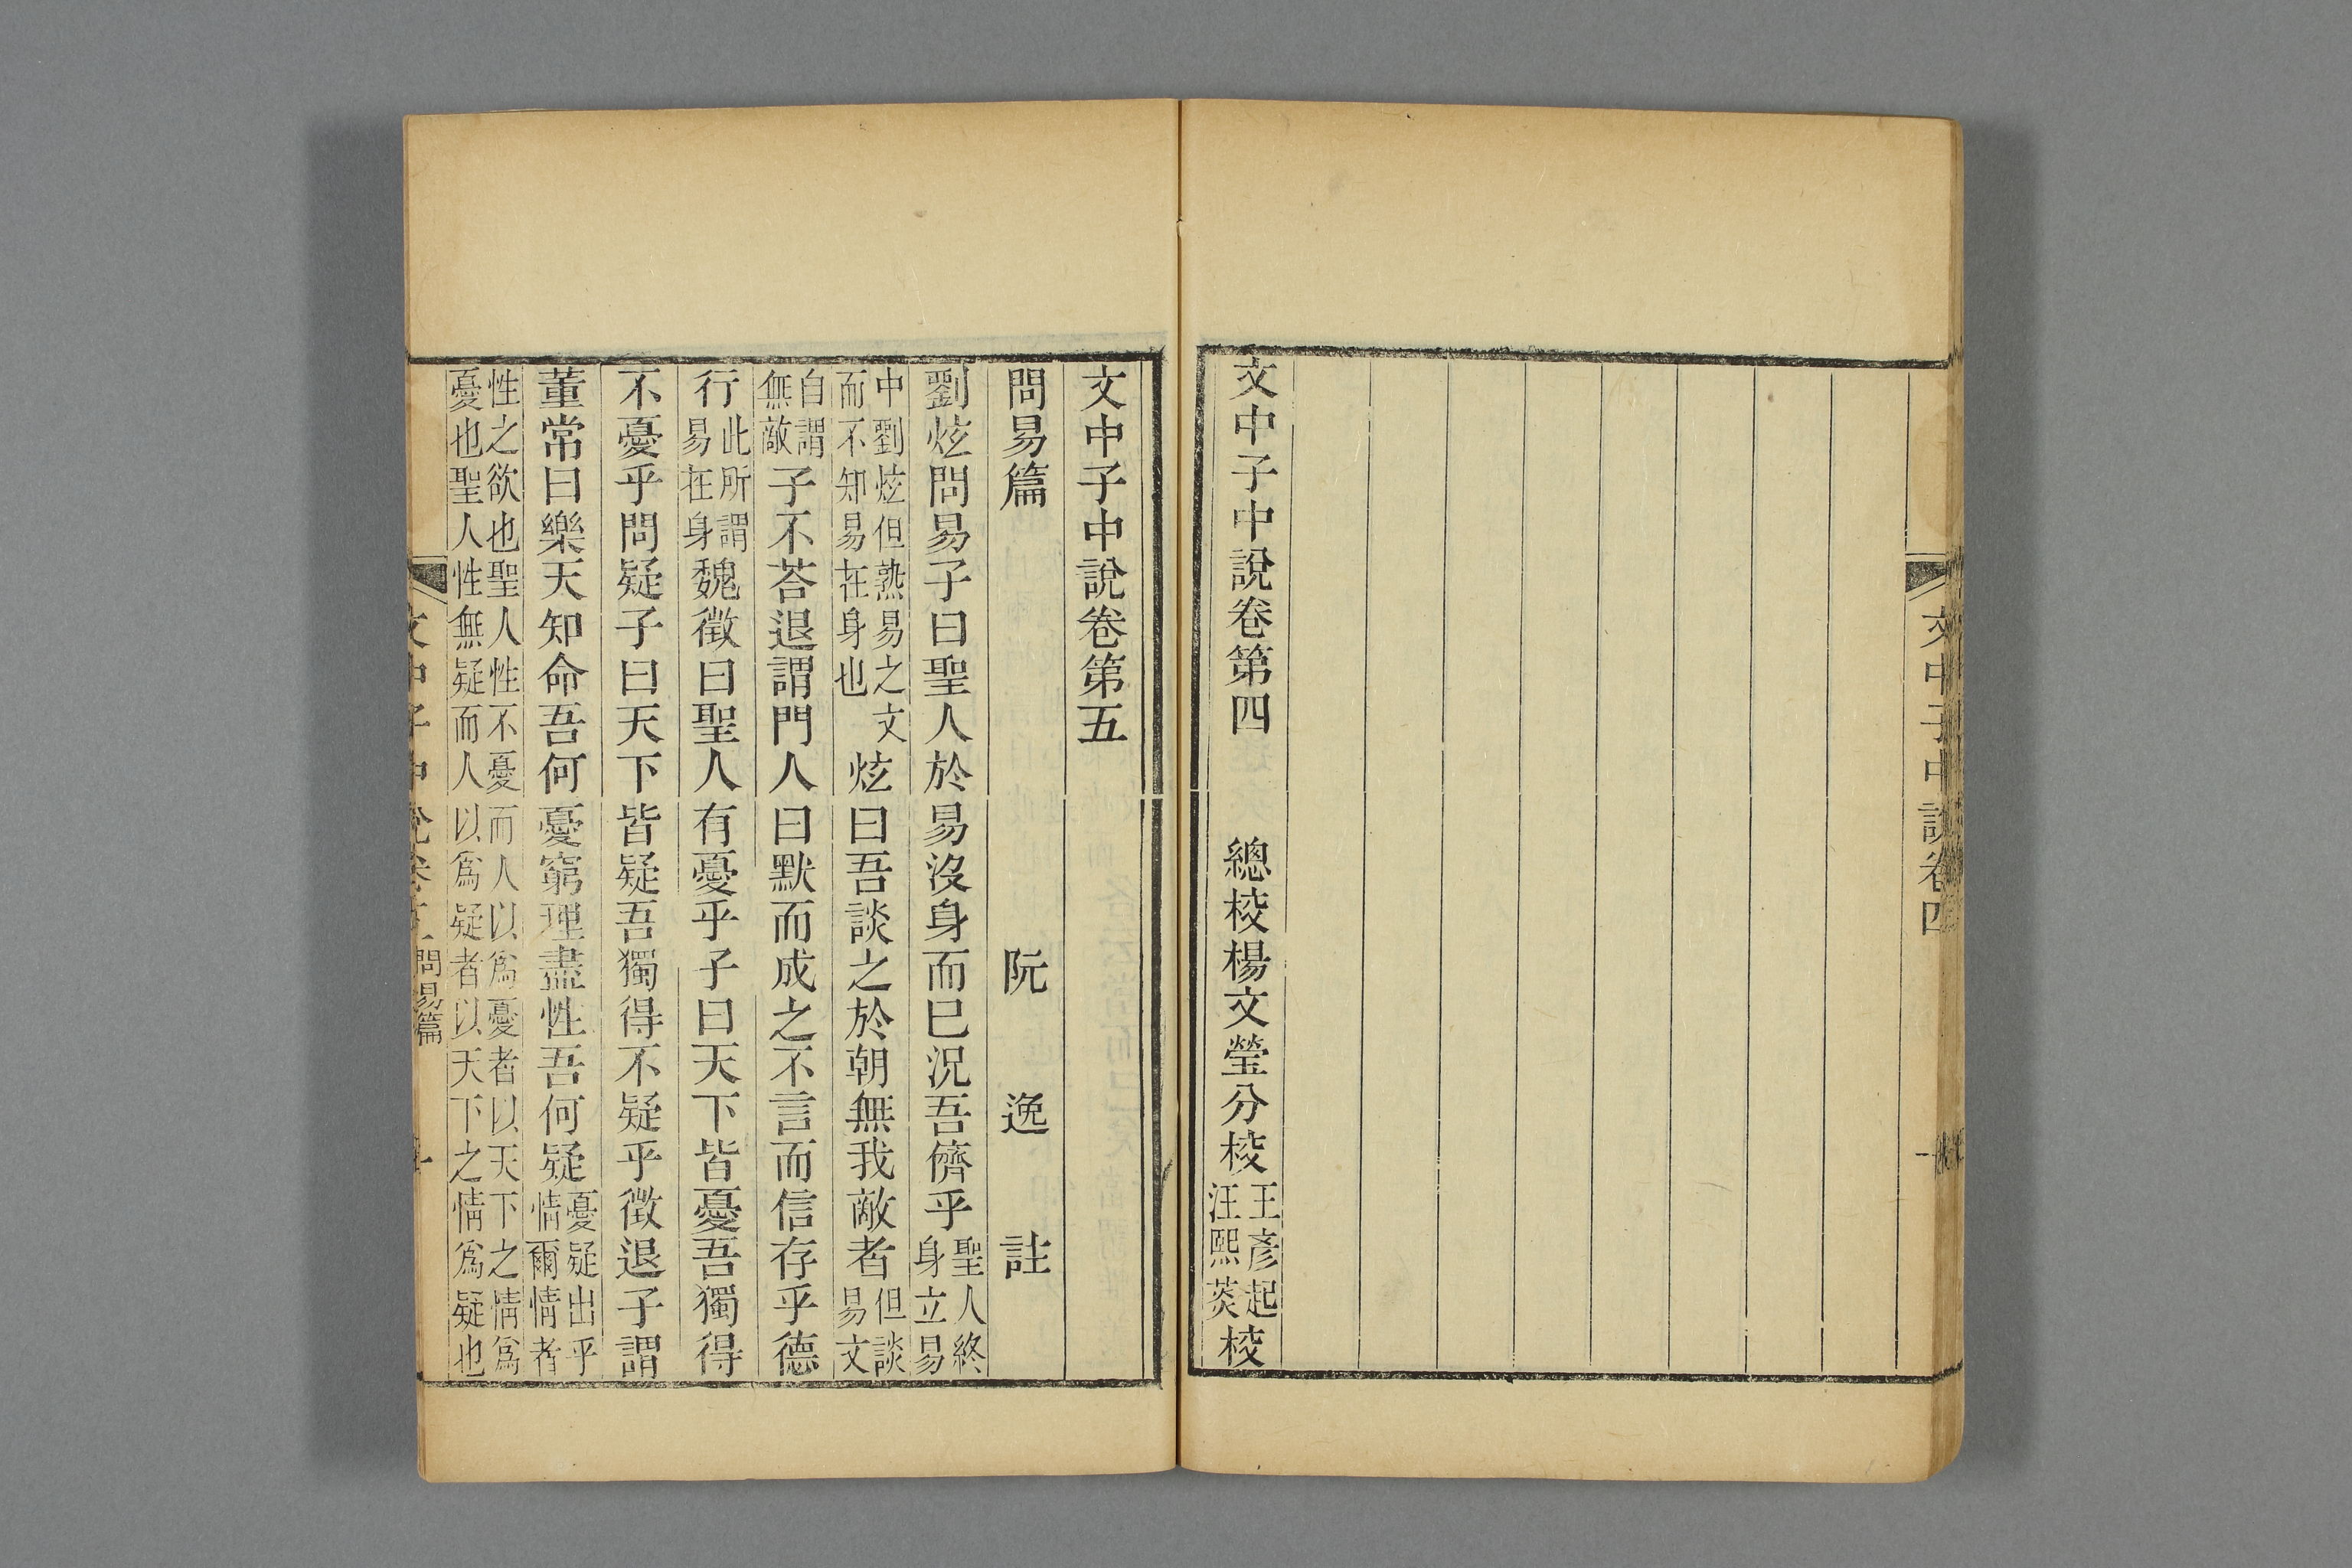 文中子中說卷四
文中子中說卷第四 總校楊文瑩分校王彥起汪熙茭校
文中子中說卷第五
問易篇 阮 逸 註
劉炫問易子曰聖人於易沒身而巳況吾儕乎聖人終身立易
中劉炫但熟易之文而不知易在身也炫曰吾談之於朝無我敵者但談易文
自謂無敵子不荅退謂門人曰默而成之不言而信存乎德
行此所謂易在身魏徵曰聖人有憂乎子曰天下皆憂吾獨得
不憂乎問疑子曰天下皆疑吾獨得不疑乎徵退子謂
董常曰樂天知命吾何憂窮理盡性吾何疑憂疑出乎情爾情者
性之欲也聖人性不憂而人以爲憂者以天下之情爲
憂也聖人性無疑而人以爲疑者以天下之情爲疑也
文中子中說卷五 問易篇 一